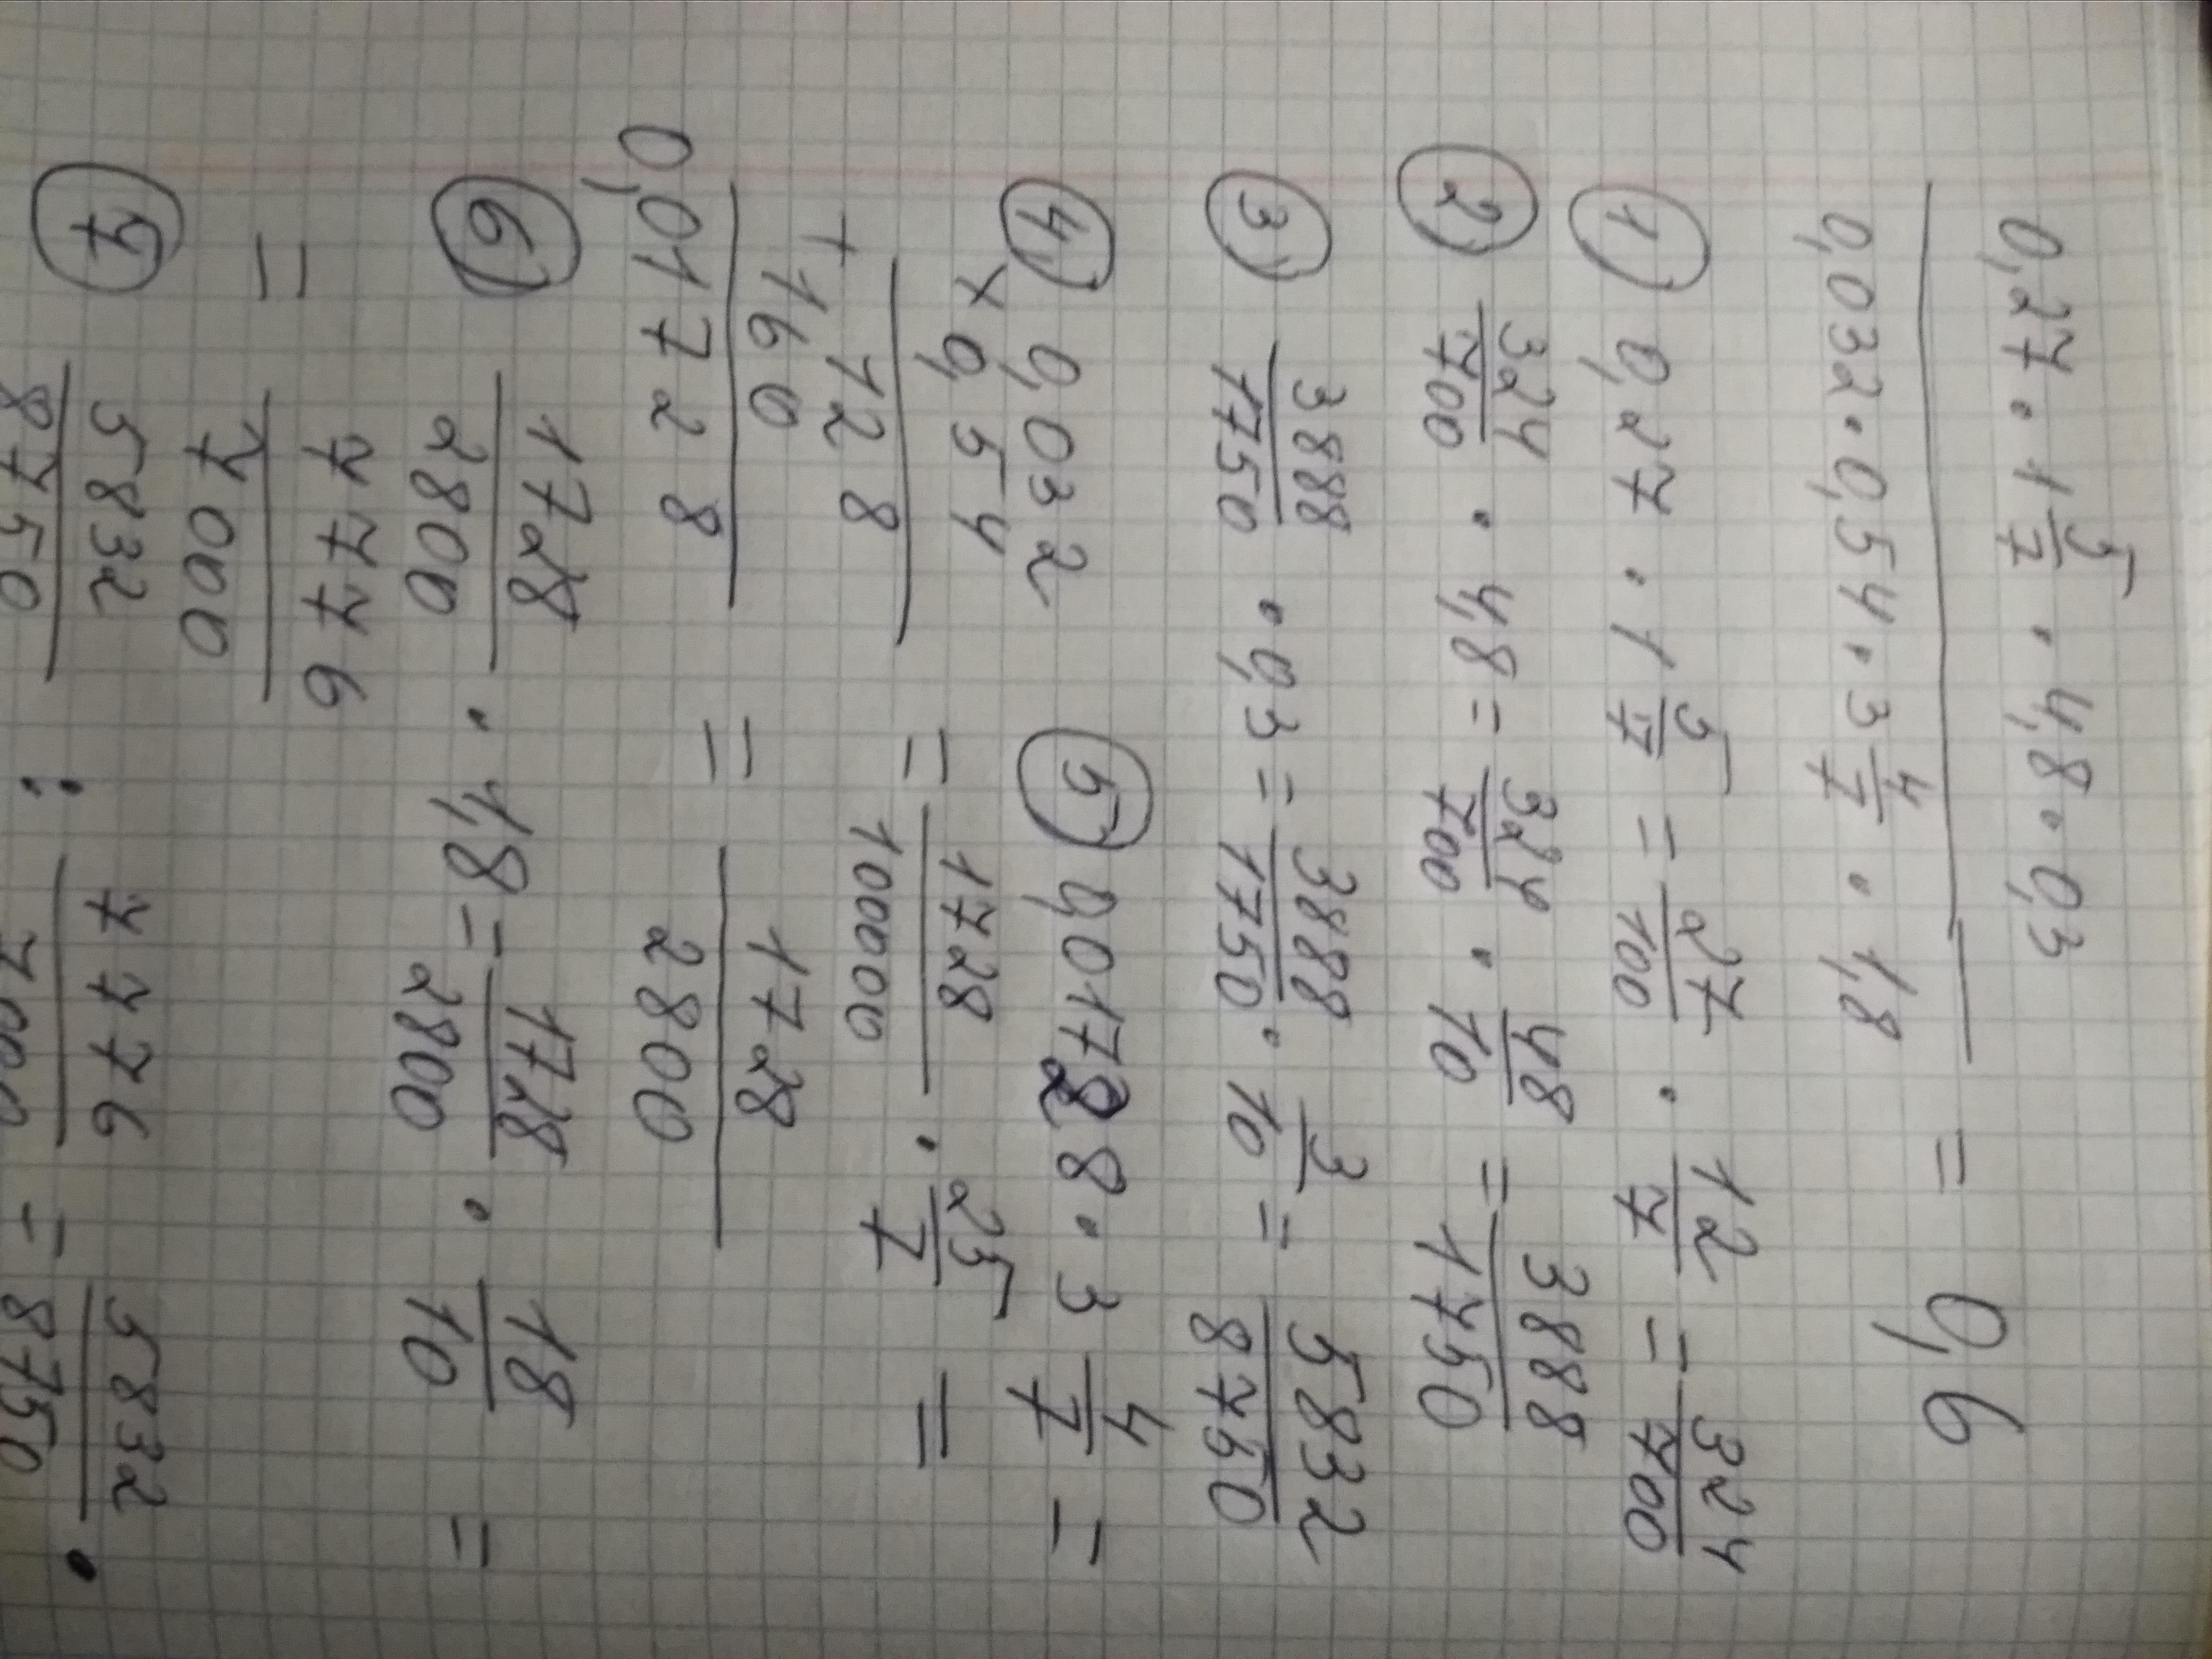 0,27 · 1 5/7 · 4,8 · 0,3
———————————————— = 0,6
0,032 · 0,54 · 3 4/7 · 1,8
① 0,27 · 1 5/7 = 27/100 · 12/7 = 324/700
② 324/700 · 4,8 = 324/700 · 48/10 = 3888/1750
③ 3888/1750 · 0,3 = 3888/1750 · 3/10 = 5832/8750
④ 0,032 ⑤ 0,01728 · 3 4/7 =
× 0,54
128 = 1728/100000 · 25/7 =
+ 160
0,01728 = 1728/2800
⑥ 1728/2800 · 1,8 = 1728/2800 · 18/10 =
= 7776/7000
⑦ 5832/8750 : 7776/7000 = 5832/8750 ·